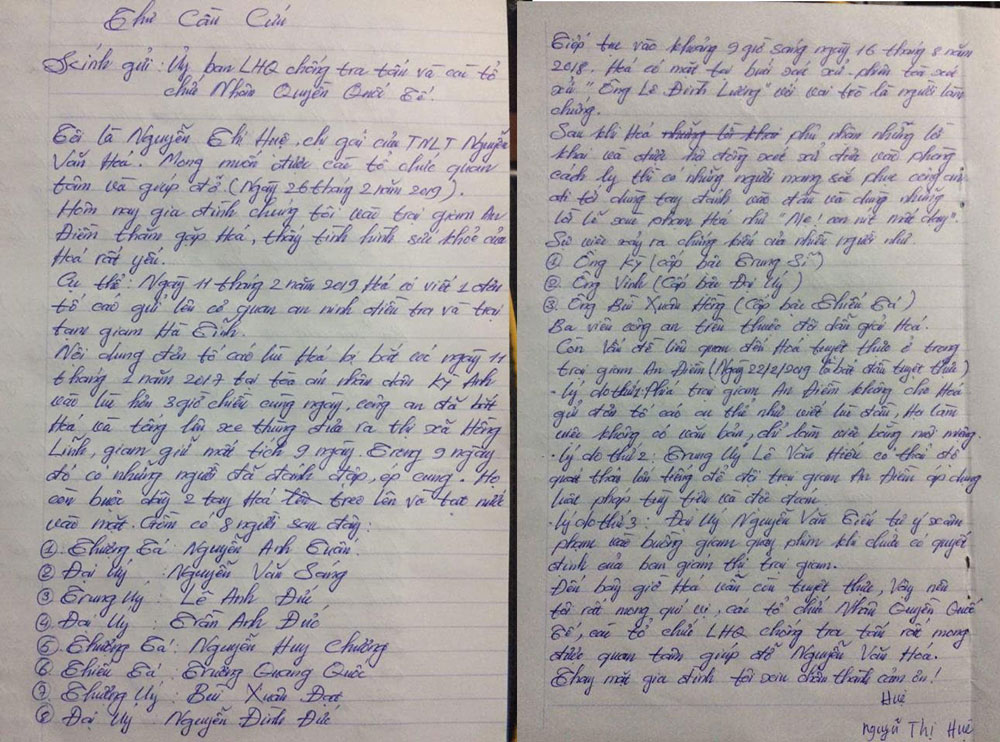 Thư Cầu Cứu
Kính gửi: Uỷ ban LHQ chống tra tấn và các tổ
chức Nhân Quyền Quốc Tế.
Tôi là Nguyễn Thị Huệ, chị gái của TNLT Nguyễn
Văn Hoá. Mong muốn được các tổ chức quan
tâm và giúp đỡ (Ngày 26 tháng 2 năm 2019).
Hôm nay gia đình chúng tôi vào trại giam An
Điềm thăm gặp Hoá, thấy tình hình sức khoẻ của
Hoá rất yếu.
Cụ thể: Ngày 11 tháng 2 năm 2019 Hoá có viết 1 đơn
tố cáo gửi lên cơ quan an ninh điều tra và trại
tạm giam Hà Tĩnh.
Nội dung đơn tố cáo là Hoá bị bắt cóc ngày 11
tháng 1 năm 2017 tại toà án nhân dân Kỳ Anh
vào lúc hơn 3 giờ chiều cùng ngày, công an đã bắt
Hoá và tống lên xe thùng đưa ra thị xã Hồng
Lĩnh, giam giữ mất tích 9 ngày. Trong 9 ngày
đó có những người đã đánh đập, ép cung. Họ
còn buộc dây 2 tay Hoá treo lên và tạt nước
vào mặt. Gồm có 8 người sau đây:
① Thượng Tá: Nguyễn Anh Tuấn
② Đại Uý: Nguyễn Văn Sáng
③ Trung Uý: Lê Anh Đức
④ Đại Uý: Trần Anh Đức
⑤ Thượng Tá: Nguyễn Huy Chương
⑥ Thiếu Tá: Trương Quang Quốc
⑦ Thượng Uý: Bùi Xuân Đạt
⑧ Đại Uý: Nguyễn Đình Đức
Tiếp tục vào khoảng 9 giờ sáng ngày 16 tháng 8 năm
2018. Hoá có mặt tại buổi xét xử phiên toà xét
xử "Ông Lê Đình Lượng" với vai trò là người làm
chứng.
Sau khi Hoá những lời khai phủ nhận những lời
khai và được hội đồng xét xử đưa vào phòng
cách ly thì có những người mang sắc phục công an
đi tới dùng tay đánh vào đầu và dùng những
lời lẽ xúc phạm Hoá như "Mẹ! con nít mất dạy".
Sự việc xảy ra chứng kiến của nhiều người như
① Ông Kỳ (cấp bậc Trung Sĩ)
② Ông Vinh (Cấp bậc Đại Uý)
③ Ông Bùi Xuân Hồng (Cấp bậc Thiếu Tá)
Ba viên công an trên thuộc đội dẫn giải Hoá.
Còn vấn đề liên quan đến Hoá tuyệt thực ở trong
trại giam An Điềm (Ngày 22/2/2019 là bắt đầu tuyệt thực)
- lý do thứ 1: Phía trại giam An Điềm không cho Hoá
gửi đơn tố cáo cụ thể như viết lúc đầu, Họ làm
việc không có văn bản, chỉ làm việc bằng mồm miệng.
- lý do thứ 2: Trung Uý Lê Văn Hiếu có thái độ
quát tháo lớn tiếng để đội trại giam An Điềm áp dụng
luật pháp tuỳ tiện và độc đoán.
- lý do thứ 3: Đại Uý Nguyễn Văn Tiến tự ý xâm
phạm vào buồng giam quay phim khi chưa có quyết
định của ban giám thị trại giam.
Đến bây giờ Hoá vẫn còn tuyệt thực, Vậy nên
tôi rất mong quí vị, các tổ chức Nhân Quyền Quốc
Tế, các tổ chức LHQ chống tra tấn rất mong
được quan tâm giúp đỡ Nguyễn Văn Hoá.
Thay mặt gia đình tôi xin chân thành cảm ơn!
Huệ
Nguyễn Thị Huệ